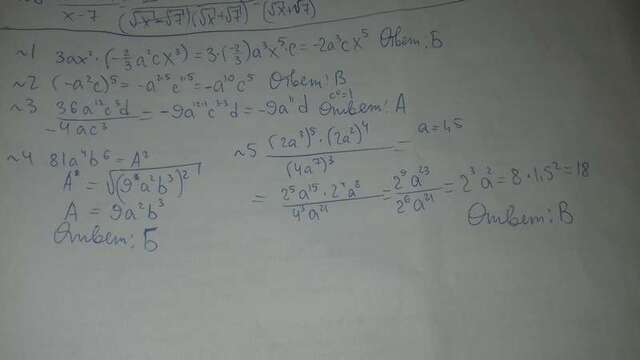 x-7 (√x-√7)(√x+√7) (√x+√7)
~1 3ax²·(-2/3a²cx³)=3·(-2/3)a³x⁵c=-2a³cx⁵ Ответ: Б
~2 (-a²c)⁵=-a²·⁵c¹·⁵=-a¹⁰c⁵ Ответ: В
~3 36a¹²c³d/-4ac³=-9a¹²⁻¹c³⁻³d=-9a¹¹d c⁰=1 Ответ: А
~4 81a⁴b⁶=A²
A=√(9a²b³)²
A=9a²b³
Ответ: Б
~5 (2a³)⁵·(2a²)⁴/(4a⁷)³= a=1,5
=2⁵a¹⁵·2⁴a⁸/4³a²¹=2⁹a²³/2⁶a²¹=2³a²=8·1,5²=18
Ответ: В